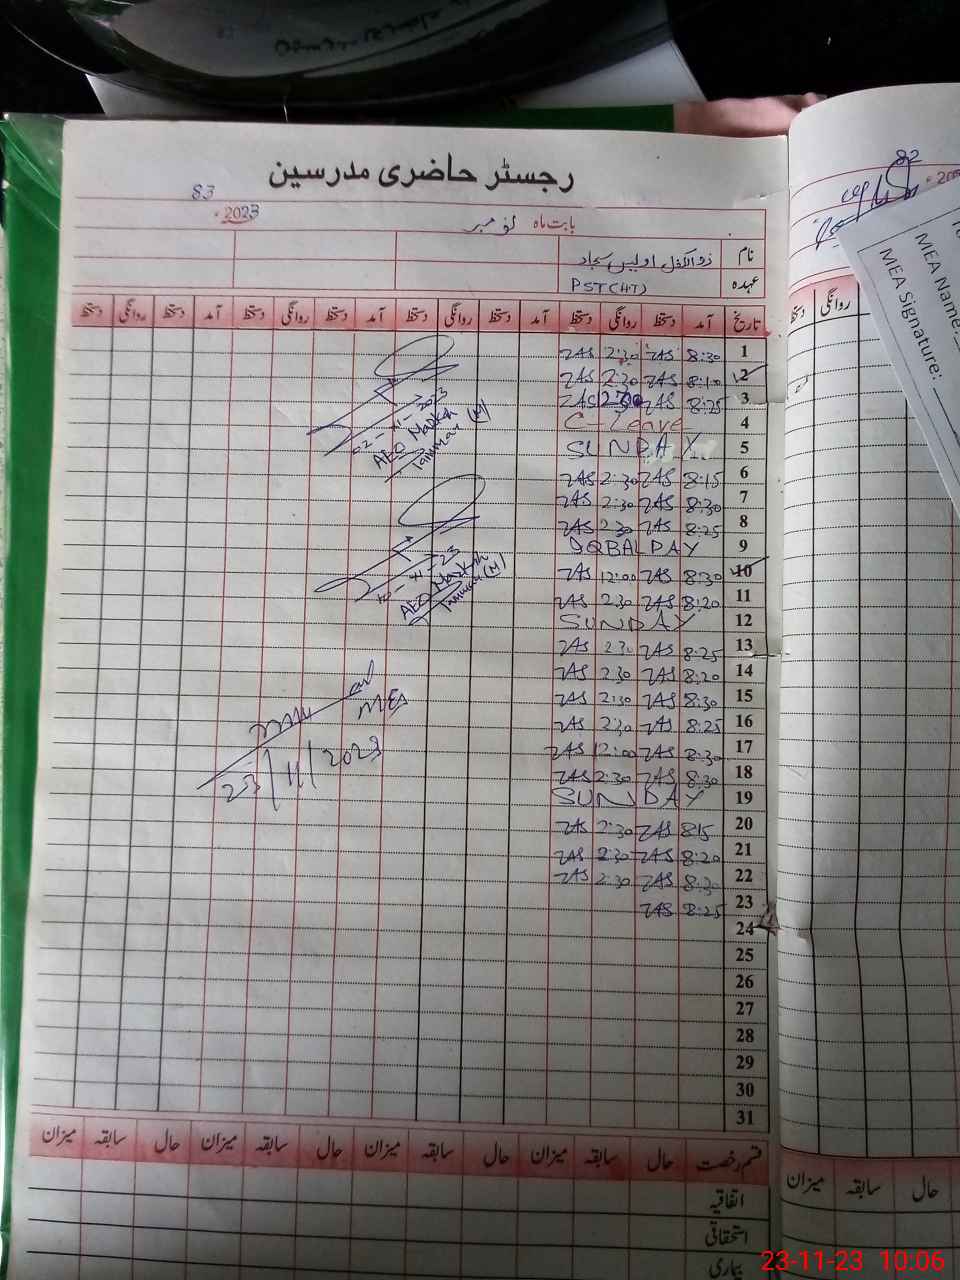 رجسٹر حاضری مدرسین
83
بابت ماہ نومبر 2023ء
نام ذوالکفل اویس سجاد
عہدہ PST(HT)
تاریخ آمد دستخط روانگی دستخط آمد دستخط روانگی دستخط آمد دستخط روانگی دستخط آمد دستخط روانگی دستخط
1 8:30 ZAS 2:30 ZAS
2 8:10 ZAS 2:30 ZAS
3 8:25 ZAS 2:30 ZAS
4 C-Leave
5 SUNDAY
6 8:15 ZAS 2:30 ZAS
7 8:30 ZAS 2:30 ZAS
8 8:25 ZAS 2:30 ZAS
9 IQBAL DAY
10 8:30 ZAS 12:00 ZAS
11 8:20 ZAS 2:30 ZAS
12 SUNDAY
13 8:25 ZAS 2:30 ZAS
14 8:20 ZAS 2:30 ZAS
15 8:30 ZAS 2:30 ZAS
16 8:25 ZAS 2:30 ZAS
17 8:30 ZAS 12:00 ZAS
18 8:30 ZAS 2:30 ZAS
19 SUNDAY
20 8:15 ZAS 2:30 ZAS
21 8:20 ZAS 2:30 ZAS
22 8:30 ZAS 2:30 ZAS
23 8:25 ZAS
24
25
26
27
28
29
30
31
02-11-2023
AEO Markaz
(M)
10-11-23
AEO Markaz
(M)
MEA
23/11/2023
قسم رخصت حال سابقہ میزان حال سابقہ میزان حال سابقہ میزان حال سابقہ میزان
اتفاقیہ
استحقاقی
بیماری
82
روانگی دستخط
MEA Name:
MEA Signature:
حال سابقہ میزان
23-11-23 10:06